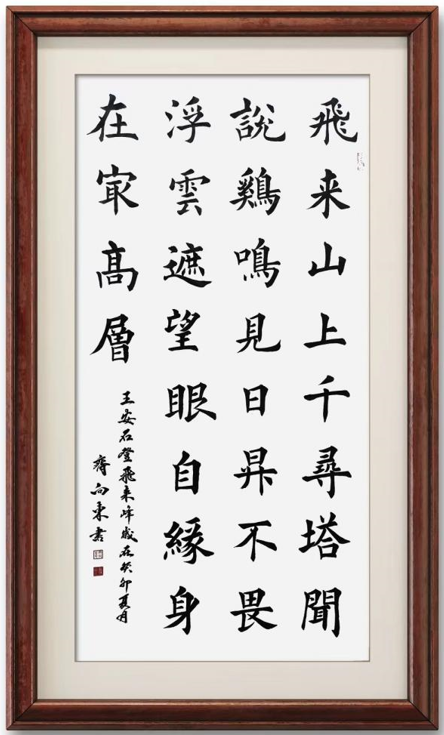 飛来山上千尋塔聞
説鷄鳴見日昇不畏
浮雲遮望眼自緣身
在㝡髙層
王安石登飛來峰歲在癸卯夏月
齊向東書